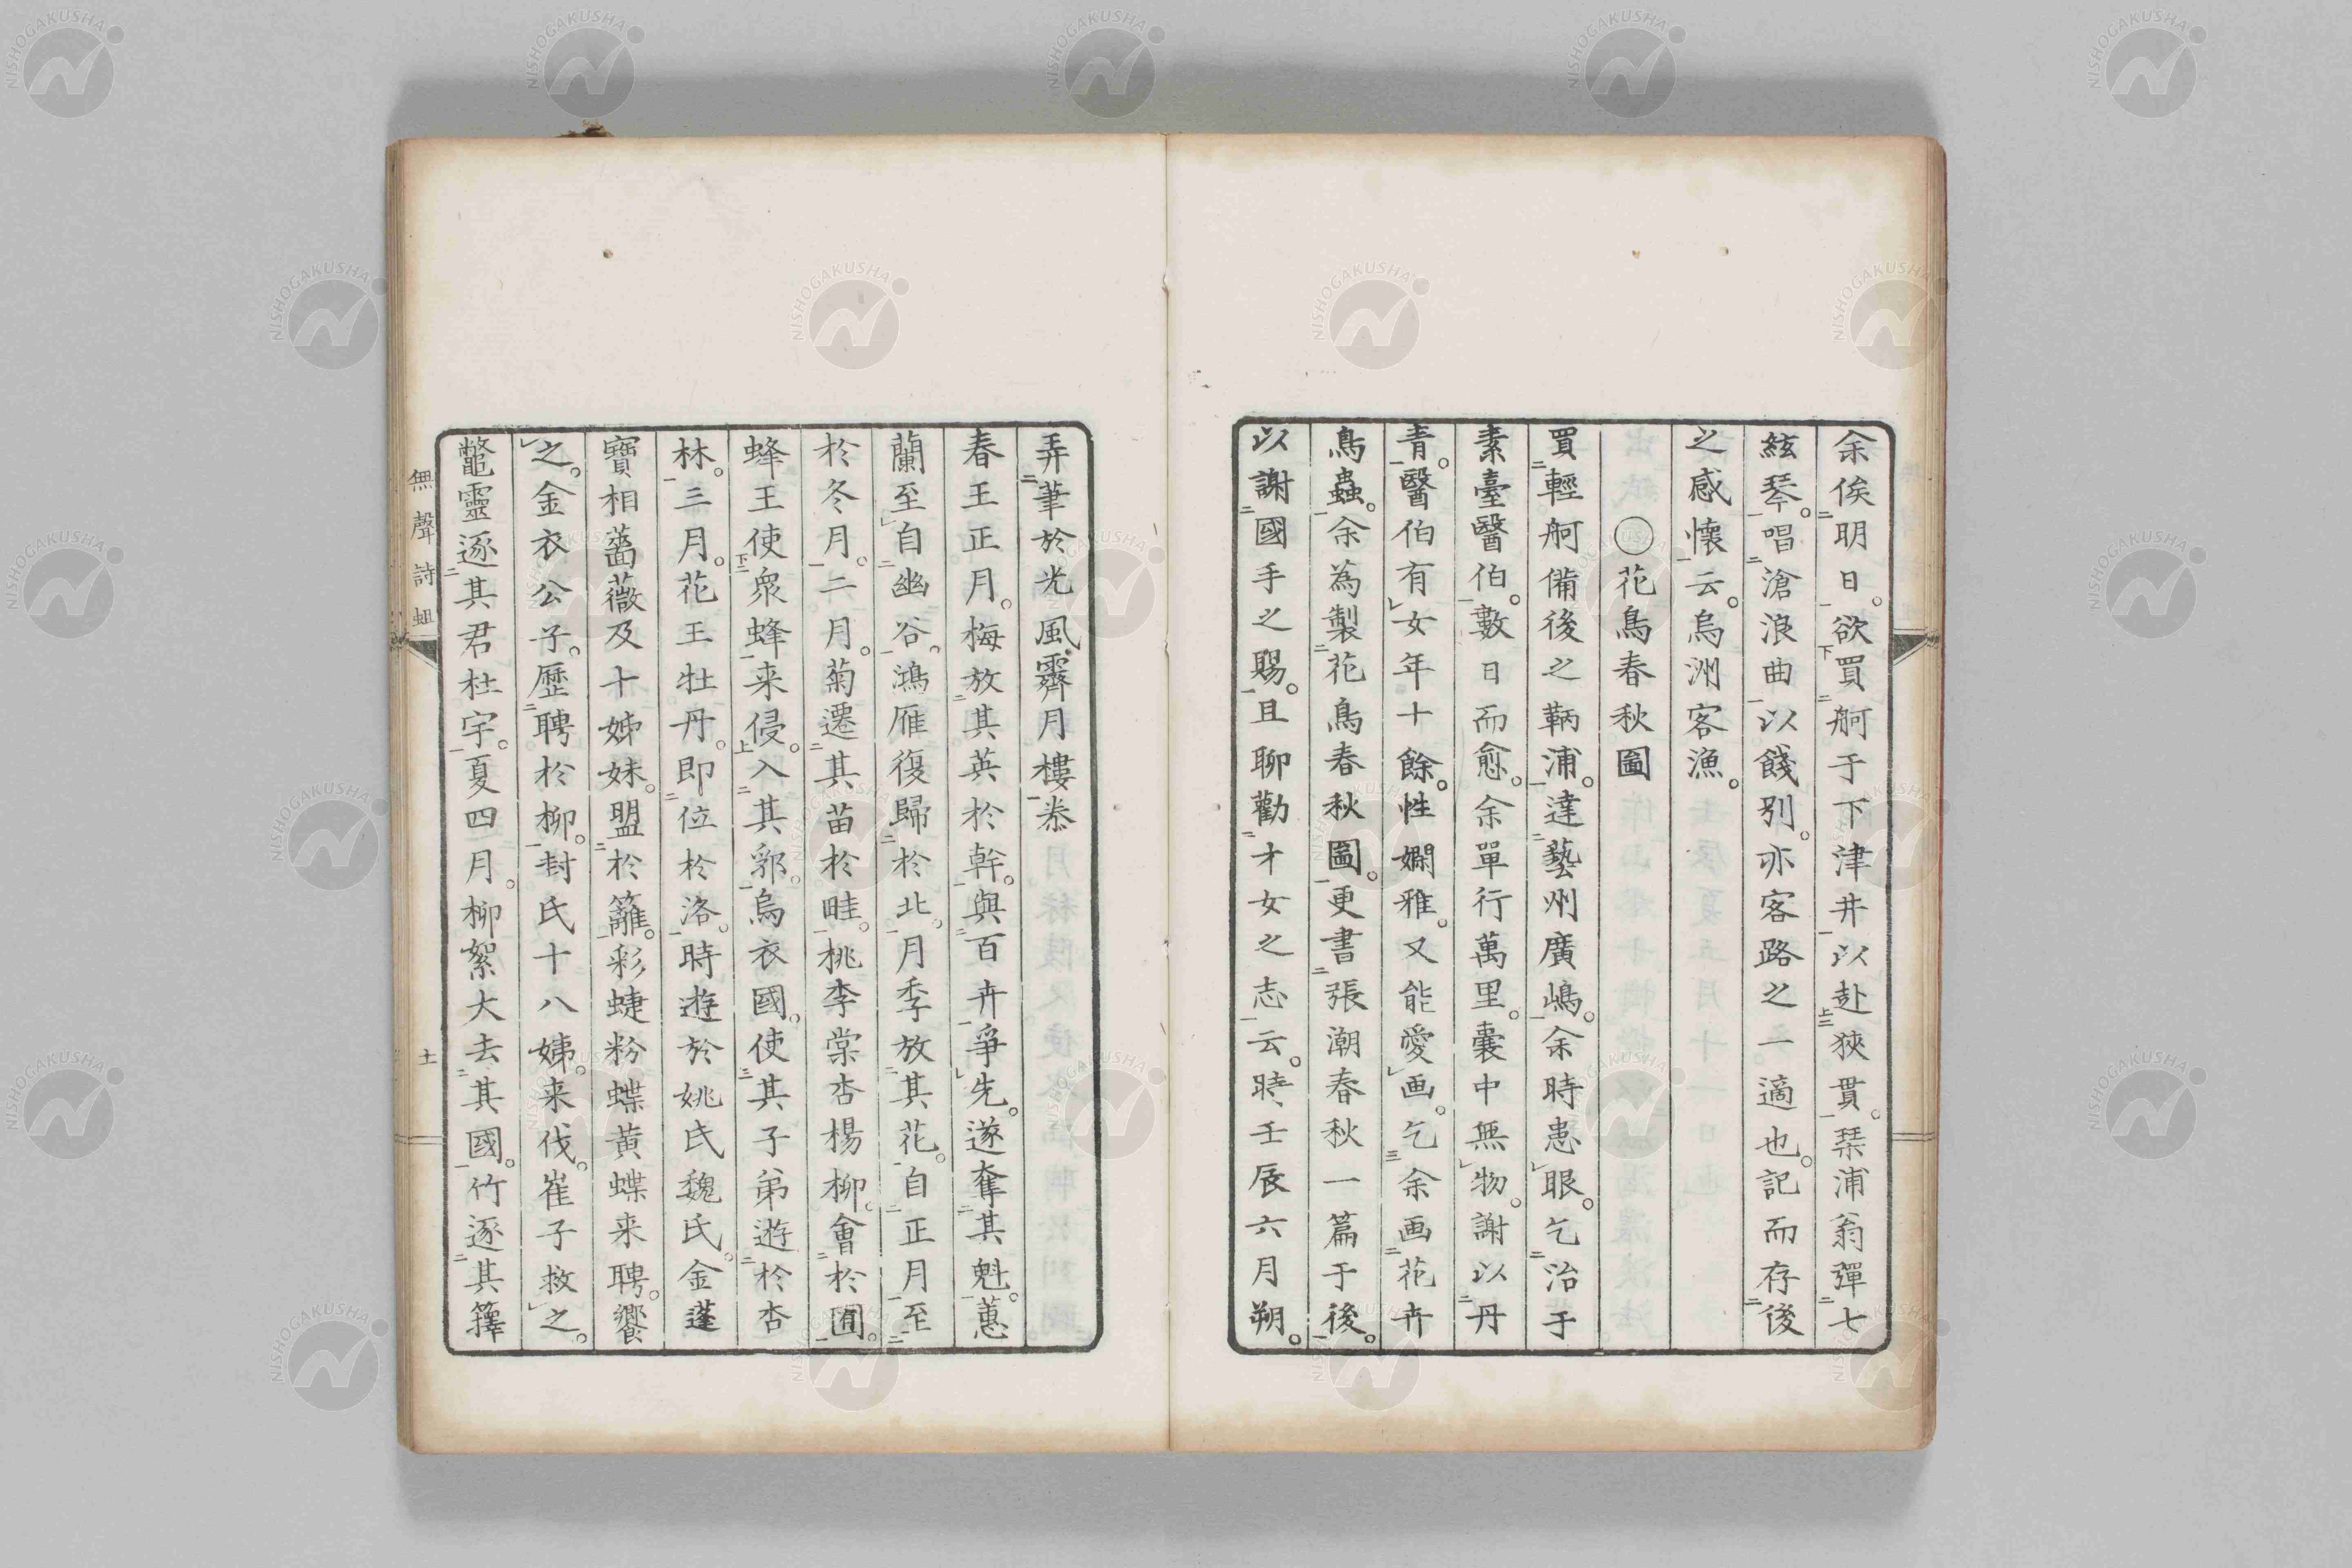 余俟明日。欲買舸于下津井以赴狹貫。琹浦翁彈七
絃琴。唱滄浪曲以餞別。亦客路之一適也。記而存後
之感懷云。烏洲客漁。
○花鳥春秋圖
買輕舸備後之鞆浦。達藝州廣嶋。余時患眼。乞治于
素臺醫伯。數日而愈。余單行萬里。囊中無物。謝以丹
青。醫伯有女年十餘。性嫻雅。又能愛画。乞余画花卉
鳥蟲。余為製花鳥春秋圖。更書張潮春秋一篇于後。
以謝國手之賜。且聊勸才女之志云。時壬辰六月朔。
弄筆於光風霽月樓
春王正月。梅放其英於幹。與百卉爭先。遂奪其魁。蕙
蘭至自幽谷。鴻雁復歸於北。月季放其花。自正月至
於冬月。二月。菊遷其苗於畦。桃李棠杏楊柳。會於囿。
蜂王使眾蜂来侵。入其郛。烏衣國。使其子弟遊於杏
林。三月。花王牡丹。即位於洛。時遊於姚氏魏氏。金蓮
寶相薔薇及十姊妹。盟於籬。彩蜨粉蝶黄蝶来聘。饗
之。金衣公子。歷聘於柳。封氏十八姨。来伐。崔子救之。
鼈靈逐其君杜宇。夏四月。柳絮大去其國。竹逐其籜
無聲詩
土
NISHOGAKUSHA